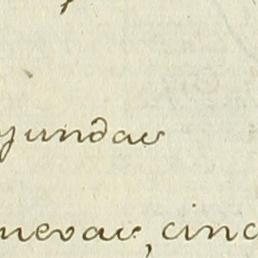 yundas
nuevas, cinc